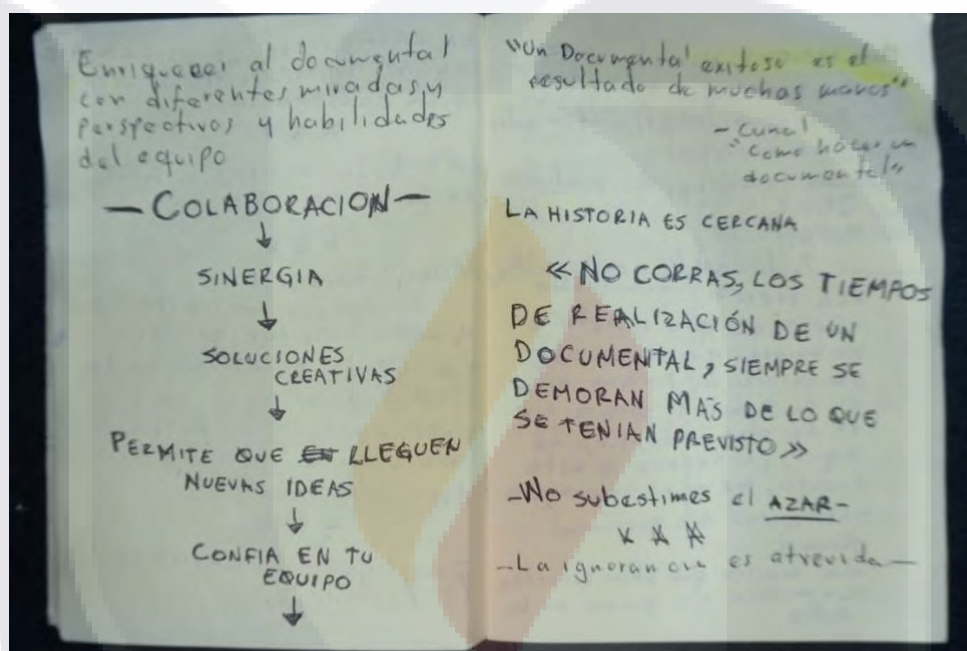 Enriquecer al documental
con diferentes miradas y
perspectivas y habilidades
del equipo
— COLABORACION —
↓
SINERGIA
↓
SOLUCIONES
CREATIVAS
↓
PERMITE QUE LLEGUEN
NUEVAS IDEAS
↓
CONFIA EN TU
EQUIPO
↓
"Un Documental exitoso es el
resultado de muchas manos"
-
"Como hacer un
documental"
LA HISTORIA ES CERCANA
« NO CORRAS, LOS TIEMPOS
DE REALIZACIÓN DE UN
DOCUMENTAL, SIEMPRE SE
DEMORAN MÁS DE LO QUE
SE TENIAN PREVISTO »
-No subestimes el AZAR-
-La ignorancia es atrevida-